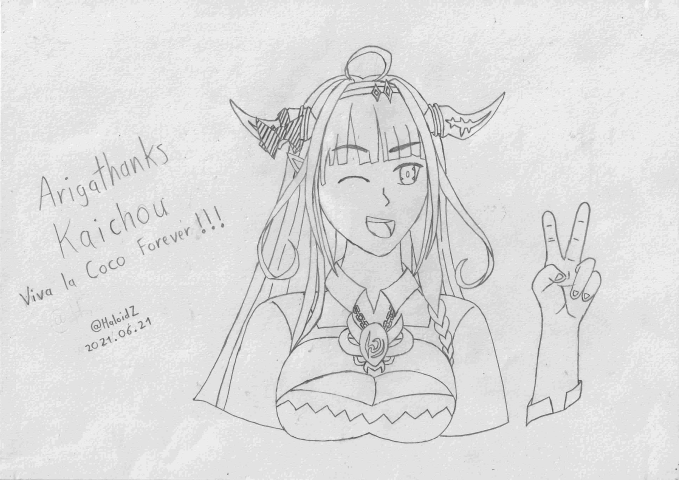 Arigathanks
Kaichou
Viva la Coco Forever!!!
@HaloidZ
2021.06.21